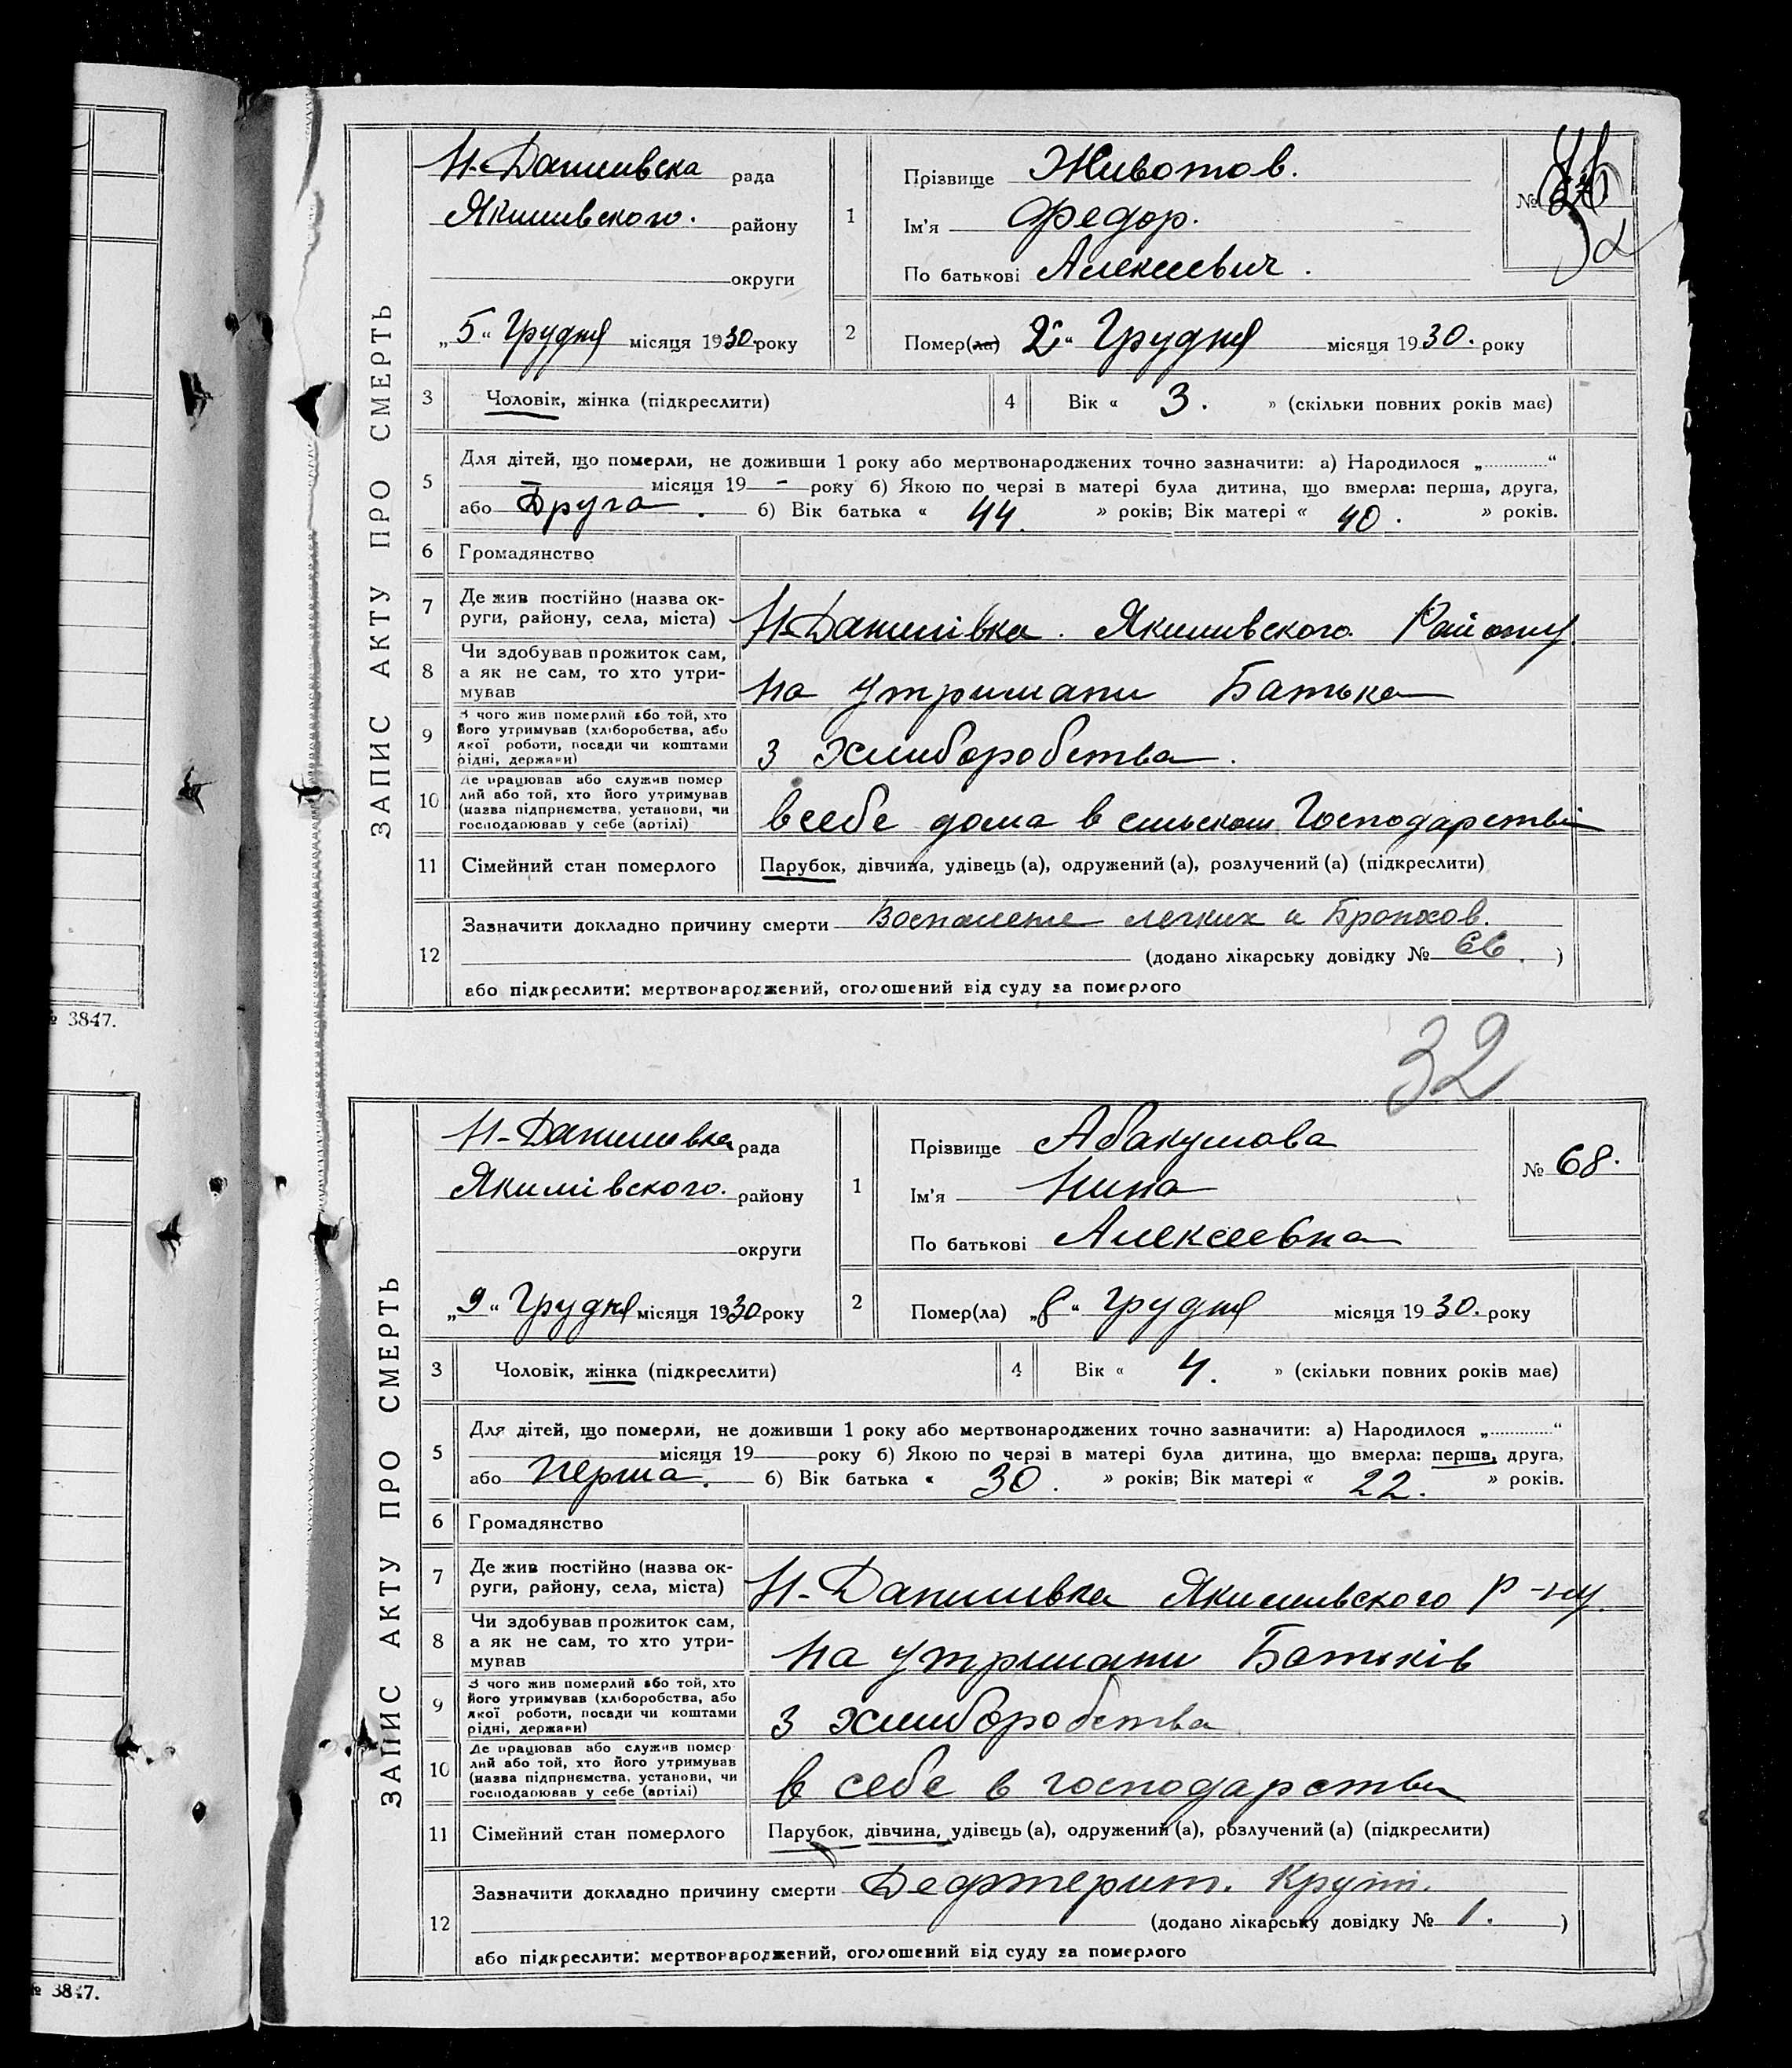 № 3847.
№ 3847.
ЗАПИС АКТУ ПРО СМЕРТЬ
Н-Даниливска рада
Якимивского. району
округи
„5“ Грудня місяця 1930 року
1
Прізвище Животов.
Ім'я Федор.
По батькові Алексеевич.
№
2
Помер(ла) 2“ Грудня місяця 1930. року
3 Чоловік, жінка (підкреслити)
4 Вік « 3. » (скільки повних років має)
5 Для дітей, що померли, не доживши 1 року або мертвонароджених точно зазначити: а) Народилося „............“
— місяця 19 — року б) Якою по черзі в матері була дитина, що вмерла: перша, друга,
або Друга. б) Вік батька « 44. » років; Вік матері « 40. » років.
6 Громадянство
7 Де жив постійно (назва ок-
руги, району, села, міста) Н-Данилівка. Якимивского Району
8 Чи здобував прожиток сам,
а як не сам, то хто утри-
мував На утримани Батька
9 З чого жив померлий або той, хто
його утримував (хліборобства, або
якої роботи, посади чи коштами
рідні, держави) З хлиборобства.
10 Де працював або служив помер
лий або той, хто його утримував
(назва підприємства, установи, чи
господарював у себе (артілі) в себе дома в сильском Господарстві
11 Сімейний стан померлого Парубок, дівчина, удівець (а), одружений (а), розлучений (а) (підкреслити)
12 Зазначити докладно причину смерти Воспаление легких и Бронхов.
(додано лікарську довідку № 66. )
або підкреслити: мертвонароджений, оголошений від суду за померлого
32
ЗАПИС АКТУ ПРО СМЕРТЬ
Н-Даниливка рада
Якимівского. району
округи
„9“ Грудня місяця 1930 року
1
Прізвище Абакумова
Ім'я Нина
По батькові Алексеевна
№ 68.
2
Помер(ла) „8“ Грудня місяця 1930. року
3 Чоловік, жінка (підкреслити)
4 Вік « 4. » (скільки повних років має)
5 Для дітей, що померли, не доживши 1 року або мертвонароджених точно зазначити: а) Народилося „............“
місяця 19 року б) Якою по черзі в матері була дитина, що вмерла: перша, друга,
або Перша. б) Вік батька « 30. » років; Вік матері « 22. » років.
6 Громадянство
7 Де жив постійно (назва ок-
руги, району, села, міста) Н-Даниливка Якимивского р-ну.
8 Чи здобував прожиток сам,
а як не сам, то хто утри-
мував На утримани Батьків
9 З чого жив померлий або той, хто
його утримував (хліборобства, або
якої роботи, посади чи коштами
рідні, держави) З хлиборобства
10 Де працював або служив помер
лий або той, хто його утримував
(назва підприємства, установи, чи
господарював у себе (артілі) в себе в господарстви
11 Сімейний стан померлого Парубок, дівчина, удівець (а), одружений (а), розлучений (а) (підкреслити)
12 Зазначити докладно причину смерти Дефтерит.
(додано лікарську довідку № 1. )
або підкреслити: мертвонароджений, оголошений від суду за померлого